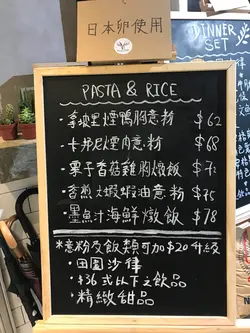 日本卵使用
DINNER
SET
PASTA & RICE
· 拿坡里煙鴨胸意粉 $62
· 卡邦尼煙肉意粉 $68
· 栗子香菇雞胸燉飯 $72
· 香煎大蝦蝦油意粉 $75
· 墨魚汁海鮮燉飯 $78
*意粉及飯類可加$20升級
· 田園沙律
· $36或以下之飲品
· 精緻甜品